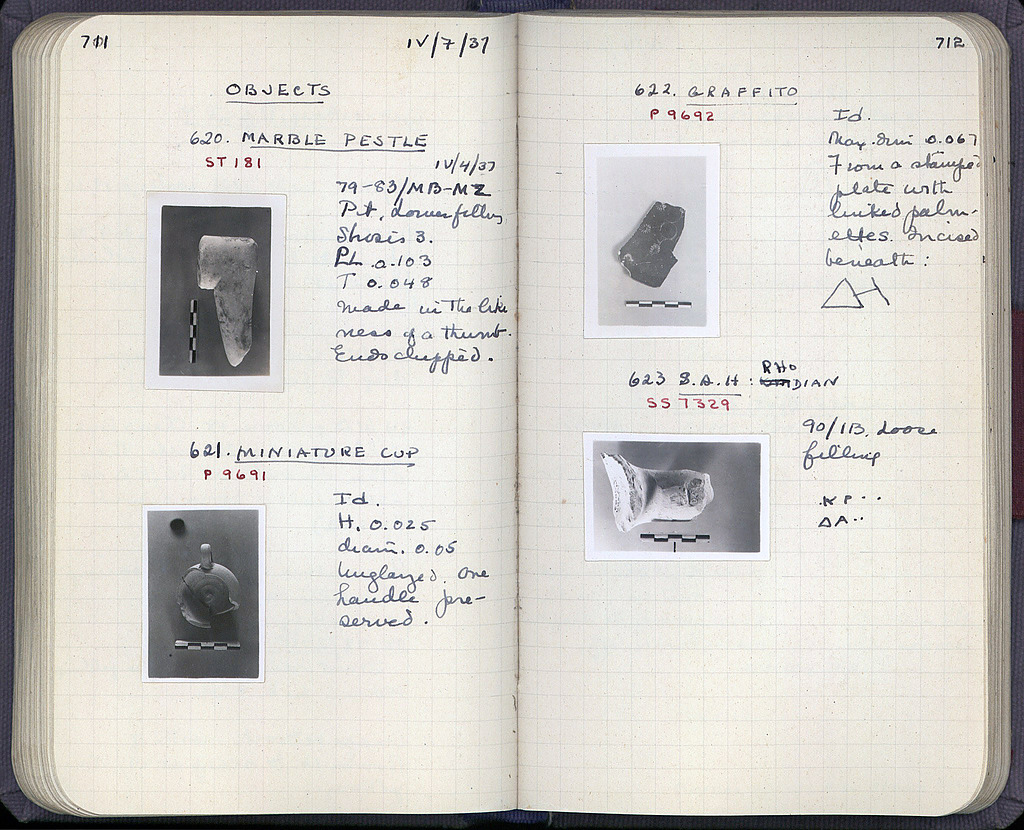 711
IV/7/37
OBJECTS
620. MARBLE PESTLE
ST 181
IV/4/37
79-83/MB-MZ
Pit, lower filling
Strosis 3.
PL. 0.103
T 0.048
made in the like
ness of a thumb.
Ends chipped.
621. MINIATURE CUP
P 9691
Id.
H. 0.025
diam. 0.05
Unglazed. One
handle pre-
served.
712
622. GRAFFITO
P 9692
Id.
Max. dim 0.067
From a stamped
plate with
linked palm-
ettes. Incised
beneath:
ΔΗ
623 S.A.H : RHODIAN
SS 7329
90/IB. Loose
filling
ΚΡ··
ΔΑ··